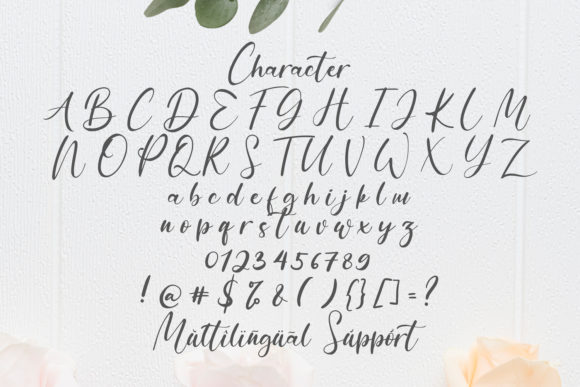 Character
A B C D E F G H I J K L M
N O P Q R S T U V W X Y Z
a b c d e f g h i j k l m
n o p q r s t u v w x y z
0 1 2 3 4 5 6 7 8 9
! @ # $ % & ( ) { } [ ] = ?
Mùttilìñgüāl Sáppórt